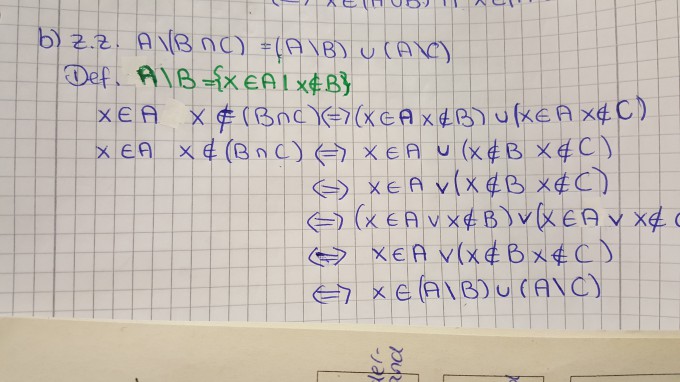 b) z.z. A\(B∩C) =(A\B) ∪ (A\C)
① Def. A\B={x∈A| x∉B}
x∈A x∉(B∩C)⟺(x∈A x∉B) ∪(x∈A x∉C)
x∈A x∉(B∩C)⟺ x∈A ∪ (x∉B x∉C)
⟺ x∈A ∨(x∉B x∉C)
⟺(x∈A ∨ x∉B)∨(x∈A ∨ x∉C
⟺ x∈A ∨(x∉B x∉C)
⟺ x∈(A\B)∪(A\C)